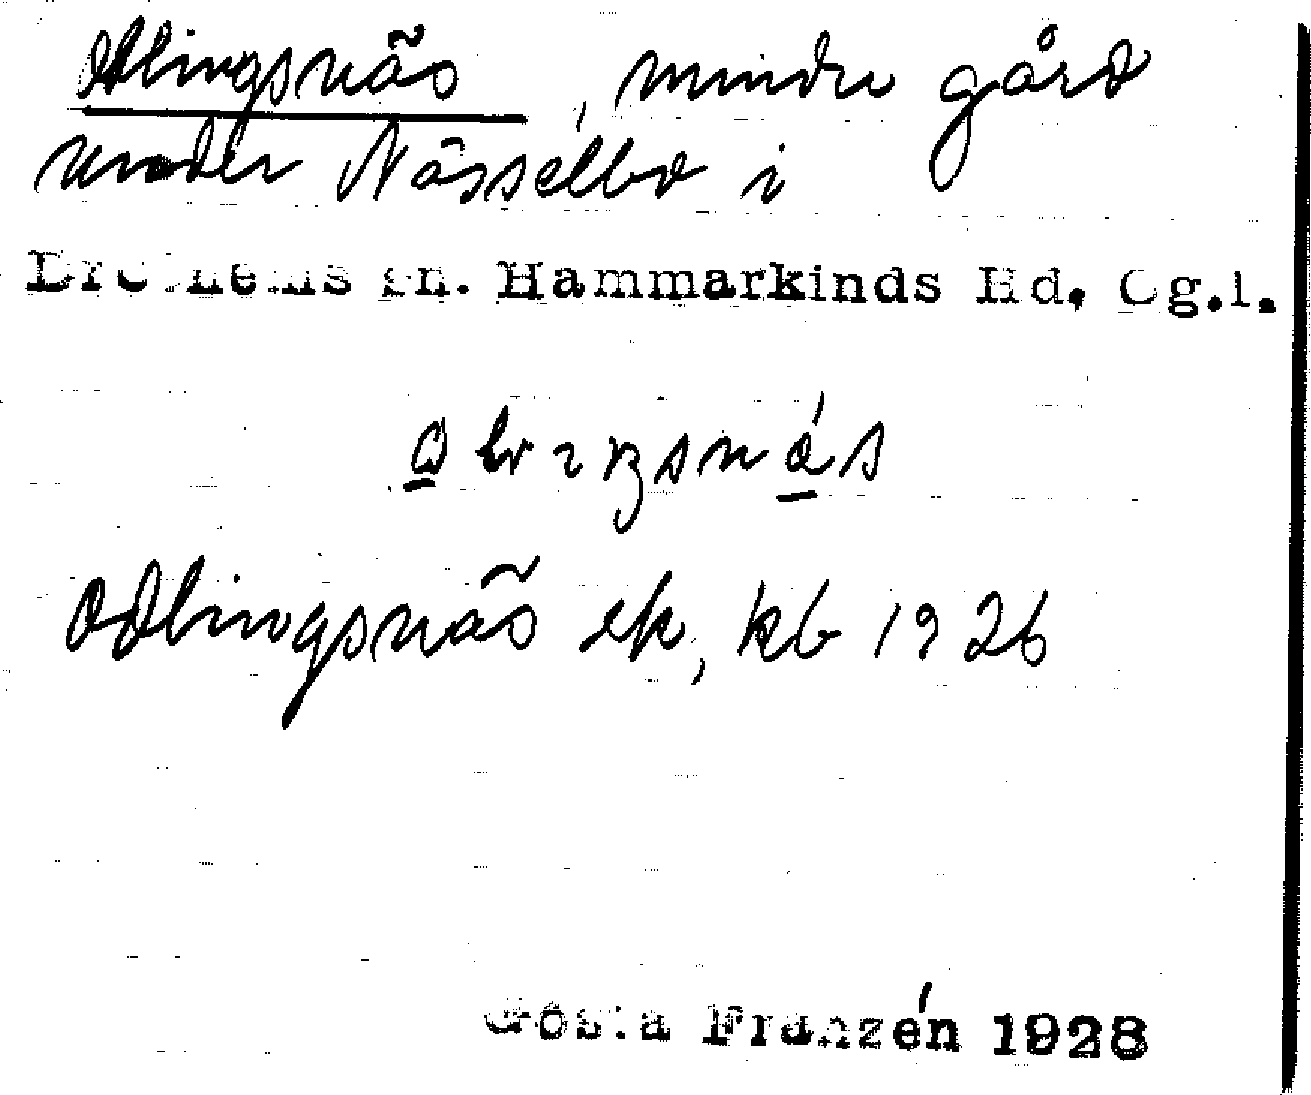 Odlingsnäs, mindre gård
under Nässelbo i
Drothems sn. Hammarkinds Hd. Ög.l.
Odlingsnäs ek, kb 1926
Gösta Franzén 1928